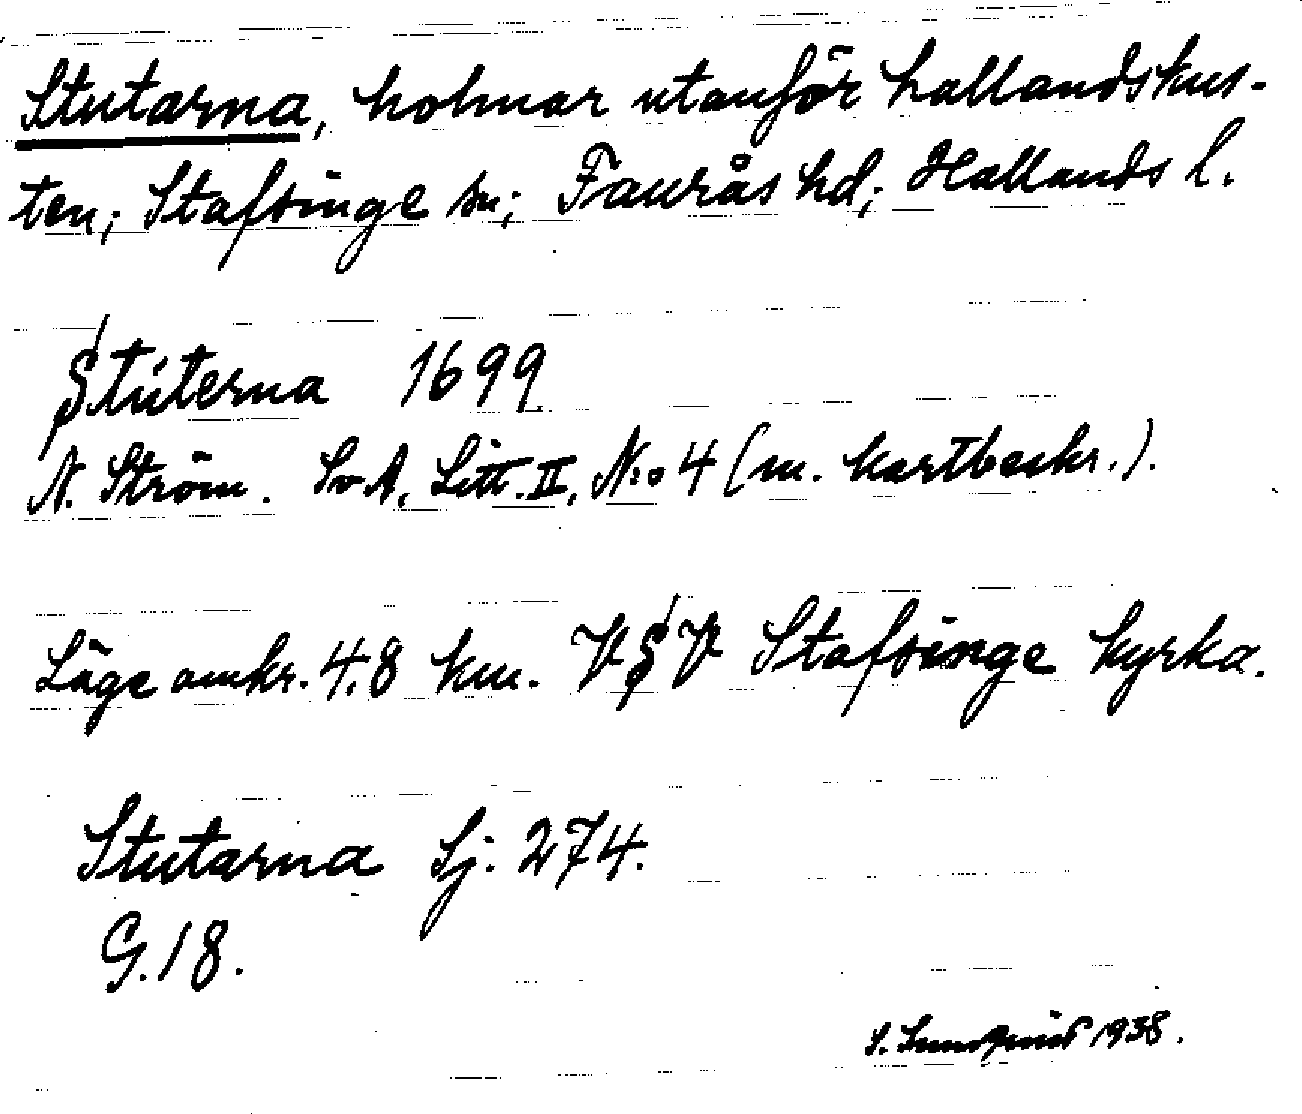 Stutarna, holmar utanför hallandskus-
ten; Stafsinge sn; Faurås hd; Hallands l.
Stúterna 1699
N. Ström. SvA, Litt. II, N:o 4 (m. kartbeskr.).
Läge omkr. 4.8 km. VSV Stafsinge kyrka.
Stutarna Sj. 274.
G.18.
S. Lundqvist 1938.